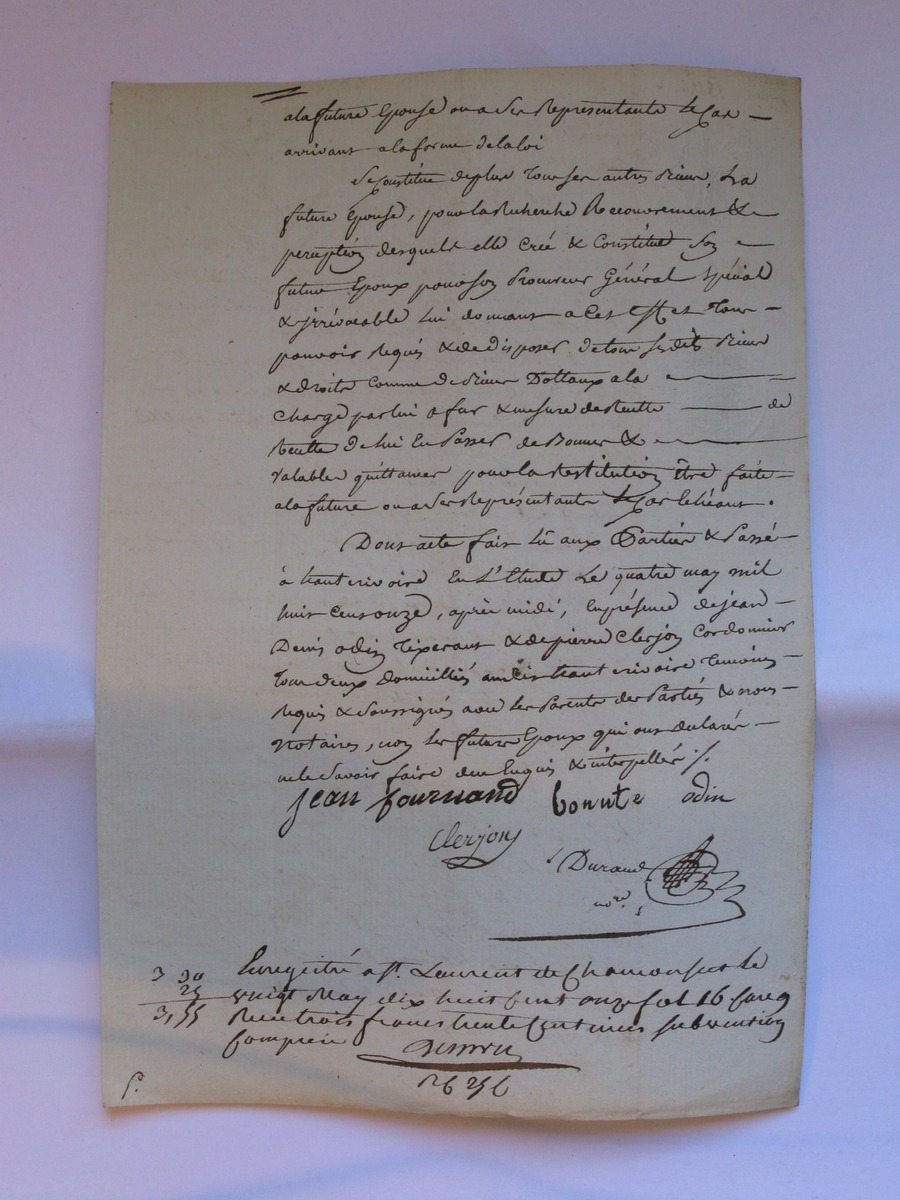 a la future Epouse ou a ses Representants le Cas
arrivant a la forme de la loi
Se Constitue de plus tous ses autres Biens, La
future Epouse, pour la Recherche Recouvrement &
perception desquels elle Créé & Constitue Son
futur Epoux pour son Procureur Général Spécial
& irrévocable lui donnant a Cet Effet Tous
pouvoirs Requis & de disposer de tous ses dits Biens
& droits Comme de Biens Dottaux a la
Charge par lui a fur & mesure de Recette de
Recette de lui En Passer de Bonnes &
Valables quittances pour la Restitution Être faite
a la future ou a ses Représentants le Cas Echéant.
Dont acte fait Lû aux Parties & Passé
à hauterivoire En L'Etude Le quatre may mil
huit Cent onze, après midi, En présence de jean
Denis odin Tixerant & de pierre Clerjon Cordonnier
Tous deux domiciliés hauterivoire Temoins
Requis & Soussignés avec les Parents des Parties & nous
Notaires, non les futurs Epoux qui ont declaré
ne le Savoir faire de ce Enquis & interpellés ./.
jean fournand bonnte odin
Clerjon
Durand
nore.
3 30 Enregistré a St. Laurent de Chamousset le
25 vingt May dix huit Cent onze fol 16
3,55 Recu trois francs trente Centimes subvention
Comprise
26 256